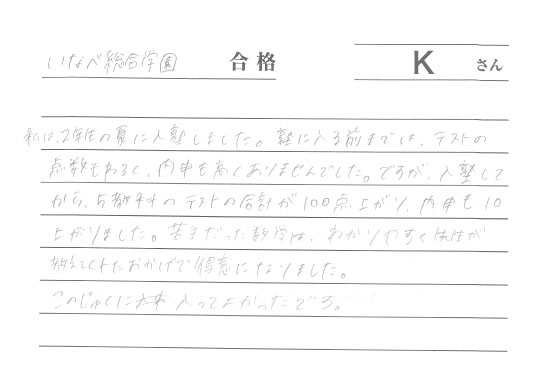 いなべ総合学園 合格 K さん
私は、2年生の夏に入塾しました。塾に入る前までは、テストの
点数もわるく、内申も高くありませんでした。ですが、入塾して
から、5教科のテストの合計が100点上がり、内申も10
上がりました。苦手だった数学は、わかりやすく先生が
教えてくれたおかげで得意になりました。
このじゅくに入ってよかったです。